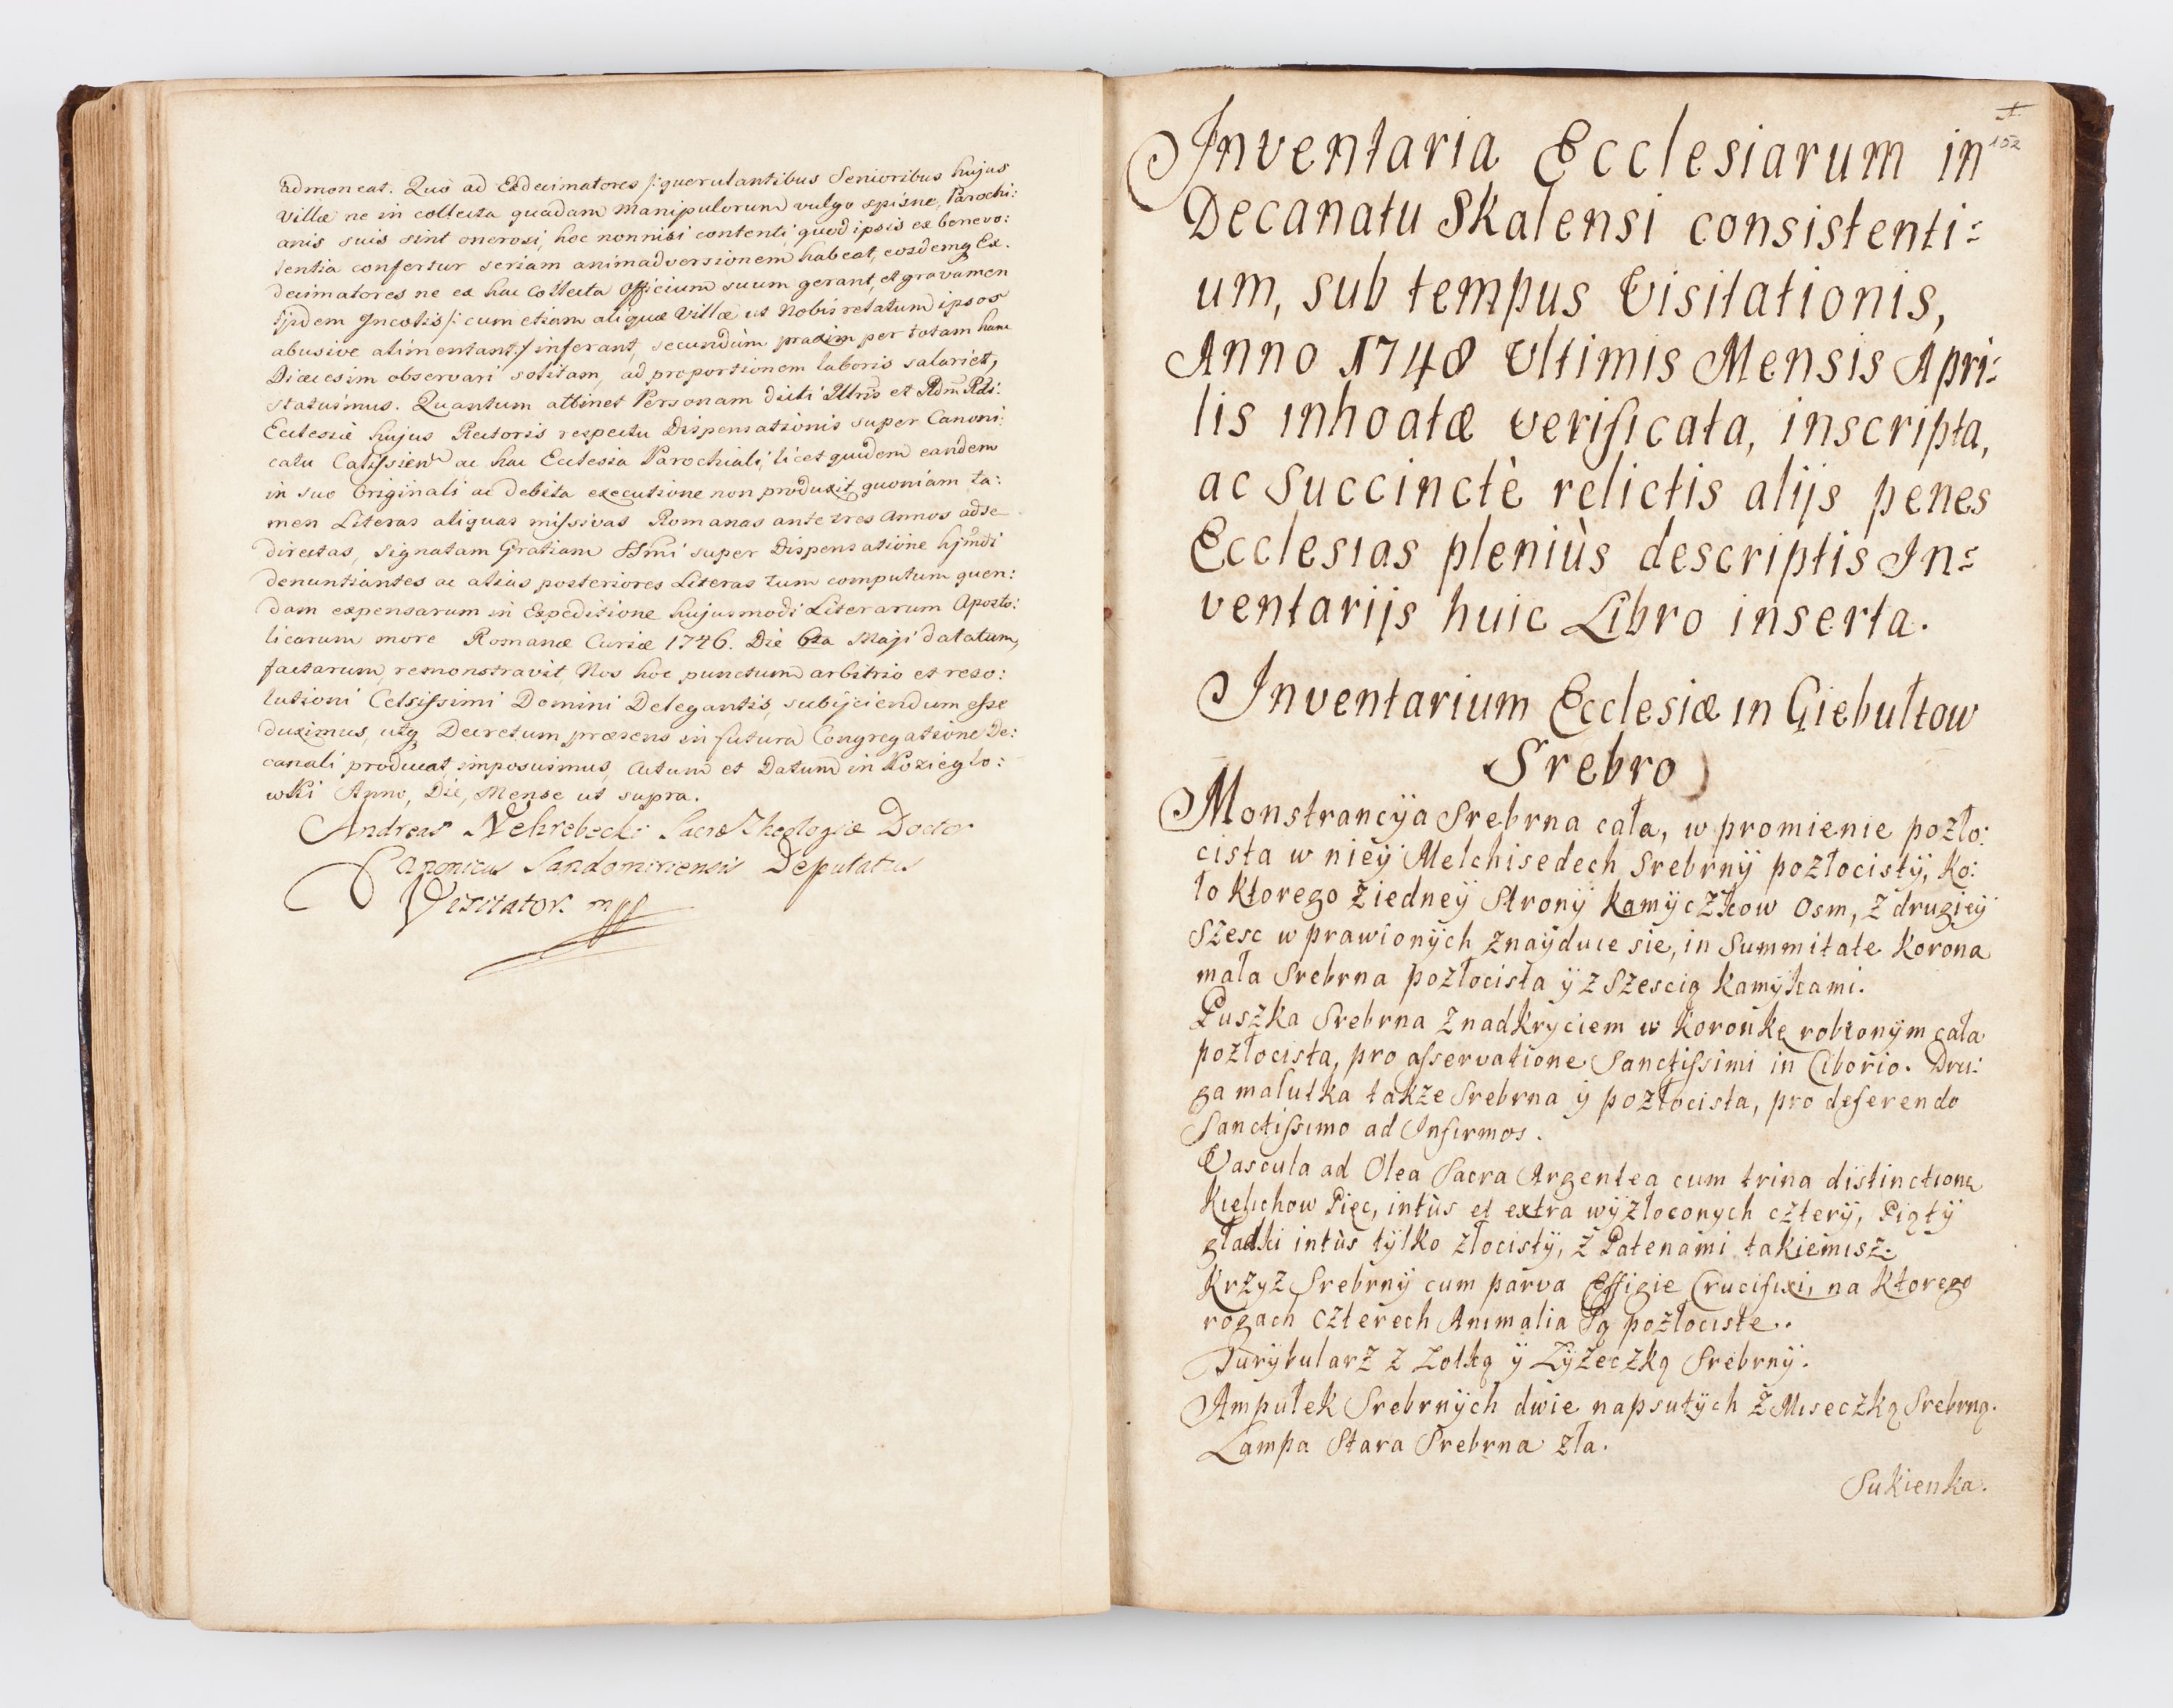 admoneat. Quò ad Exdecimatores /: querulantibus Senioribus hujus
Villæ ne in collecta quadam Manipulorum vulgo spisne, Parochi:
anis suis sint onerosi, hoc nonnisi contenti, quod ipsis ex benevo:
lentia confertur seriam animadversionem habeat, eosdemq Ex.
decimatores ne ex hac Collecta Officium suum gerant, et gravamen
ijsdem Incolis /: cum etiam aliquæ Villæ ut Nobis relatum ipsos
abusive alimentant :/ inferant, secundùm praxim per totam hanc
Diæcesim observari solitam, ad proportionem laboris salariet,
statuimus. Quantum attinet Personam dicti Illris et Adm Rdi:
Ecclesiæ hujus Rectoris respectu Dispensationis super Canoni:
catu ac hac Ecclesia Parochiali, licet quidem eandem
in suo Originali ac debita executione non produxit, quoniam ta:
men Literas aliquas missivas Romanas ante tres Annos ad se
directas, signatam Gratiam SSmi super Dispensatione hjmdi
denuntiantes ac alias posteriores Literas tum computum quen:
dam expensarum in Expeditione hujusmodi Literarum Aposto:
licarum more Romanæ Curiæ 1746. Die 6ta Maji datatum,
factarum, remonstravit, Nos hoc punctum arbitrio et reso:
lutioni Celsissimi Domini Delegantis, subijciendum esse
duximus, utq Decretum præsens in futura Congregatione De:
canali producat, imposuimus, Actum et Datum in Kozieglo:
wki Anno, Die, Mense ut supra.
Andreas Nehrebecki Sacræ Theologiæ Doctor
Canonicus Sandomiriensis Deputatus
Visitator. mpp
152
Inventaria Ecclesiarum in
Decanatu Skalensi consistenti:
um, sub tempus Visitationis,
Anno 1748 Ultimis Mensis Apri:
lis inhoatæ verificata, inscripta,
ac Succinctè relictis alijs penes
Ecclesias pleniùs descriptis In:
ventarijs huic Libro inserta.
Inventarium Ecclesiæ in Giebułtow
Srebro
Monstrancÿa Srebrna cała, w promienie pozło:
cista w nieÿ Melchisedech Srebrnÿ pozłocistÿ, Ko:
ło Ktorego z iedneÿ Stronÿ Kamÿczkow Osm, z drugieÿ
Szesc w prawionÿch znaÿduie sie, in Summitate Korona
mała Srebrna pozłocista ÿ z Szescią Kamÿkami.
Puszka Srebrna z nadkryciem w Koronkę robionÿm cała
pozłocista, pro asservatione Sanctissimi in Ciborio. Dru:
ga malutka takze Srebrna ÿ pozłocista, pro deferendo
Sanctissimo ad Infirmos.
Vascula ad Olea Sacra Argentea cum trina distinctione
Kielichow Pięc, intùs et extra wÿzłoconych czterÿ, Piątÿ
gładki intùs tÿlko złocistÿ, z Patenami takiemisz.
Krzyz Srebrnÿ cum parva Effigie Crucifixi, na Ktorego
rogach czterech Animalia Są pozłociste..
Turÿbularz z Łotką ÿ Łÿzeczką Srebrnÿ.
Ampułek Srebrnÿch dwie napsutÿch z Miseczką Srebrną.
Lampa Stara Srebrna zła.
Sukienka.